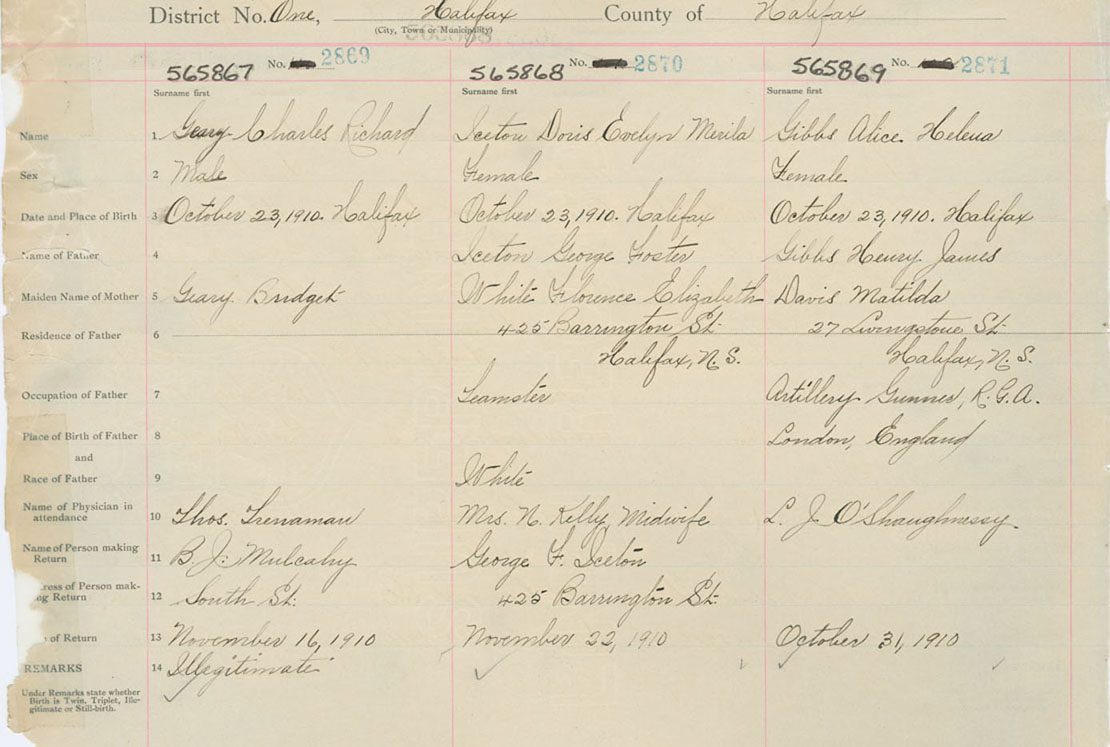 District No. One, Halifax County of Halifax
(City, Town or Municipality)
565867 No. 2869 565868 No. 2870 565869 No. 2871
Surname first Surname first Surname first
Name 1 Geary Charles Richard Iceton Doris Evelyn Merila Gibbs Alice Helena
Sex 2 Male Female Female
Date and Place of Birth 3 October 23, 1910. Halifax October 23, 1910. Halifax October 23, 1910. Halifax
Name of Father 4 Iceton George Foster Gibbs Henry James
Maiden Name of Mother 5 Geary Bridget White Florence Elizabeth Davis Matilda
Residence of Father 6 425 Barrington St. 27 Livingstone St.
Halifax, N.S. Halifax, N.S.
Occupation of Father 7 Teamster Artillery Gunner, R.G.A.
Place of Birth of Father 8 London, England
and
Race of Father 9 White
Name of Physician in attendance 10 Thos. Trenaman Mrs. N. Kelly Midwife L. J. O'Shaughnessy
Name of Person making Return 11 B. J. Mulcahy George F. Iceton
ress of Person mak-
ng Return 12 South St. 425 Barrington St.
of Return 13 November 16, 1910 November 22, 1910 October 31, 1910
REMARKS 14 Illegitimate
Under Remarks state whether
Birth is Twin, Triplet, Ille-
gitimate or Still-birth.